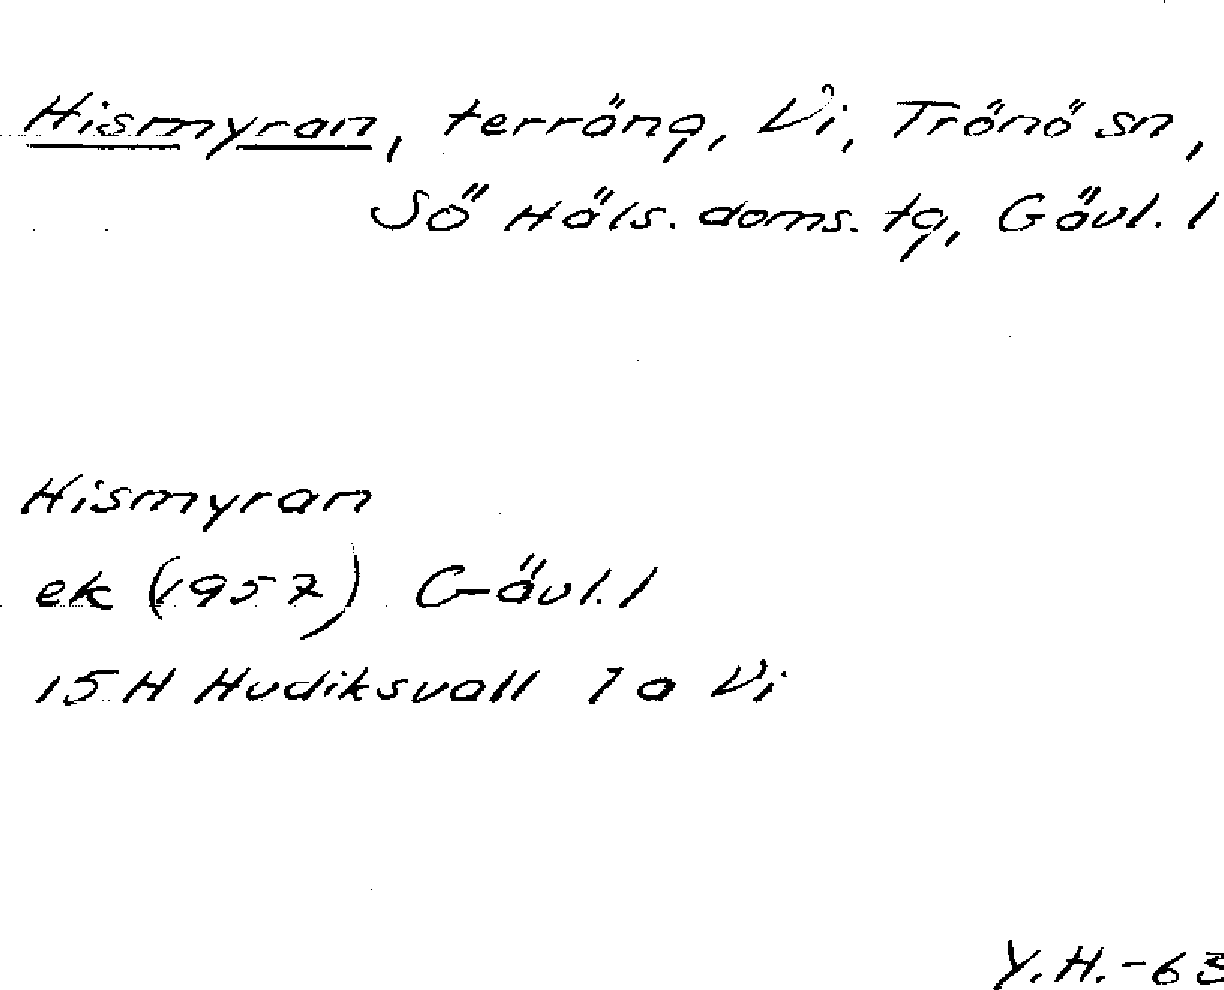 Hismyran, terräng, Vi, Trönö sn,
Sö Häls. doms. tg, Gävl. l
Hismyran
ek (1957) Gävl. l
15 H Hudiksvall 1 a Vi
Y.H.-63